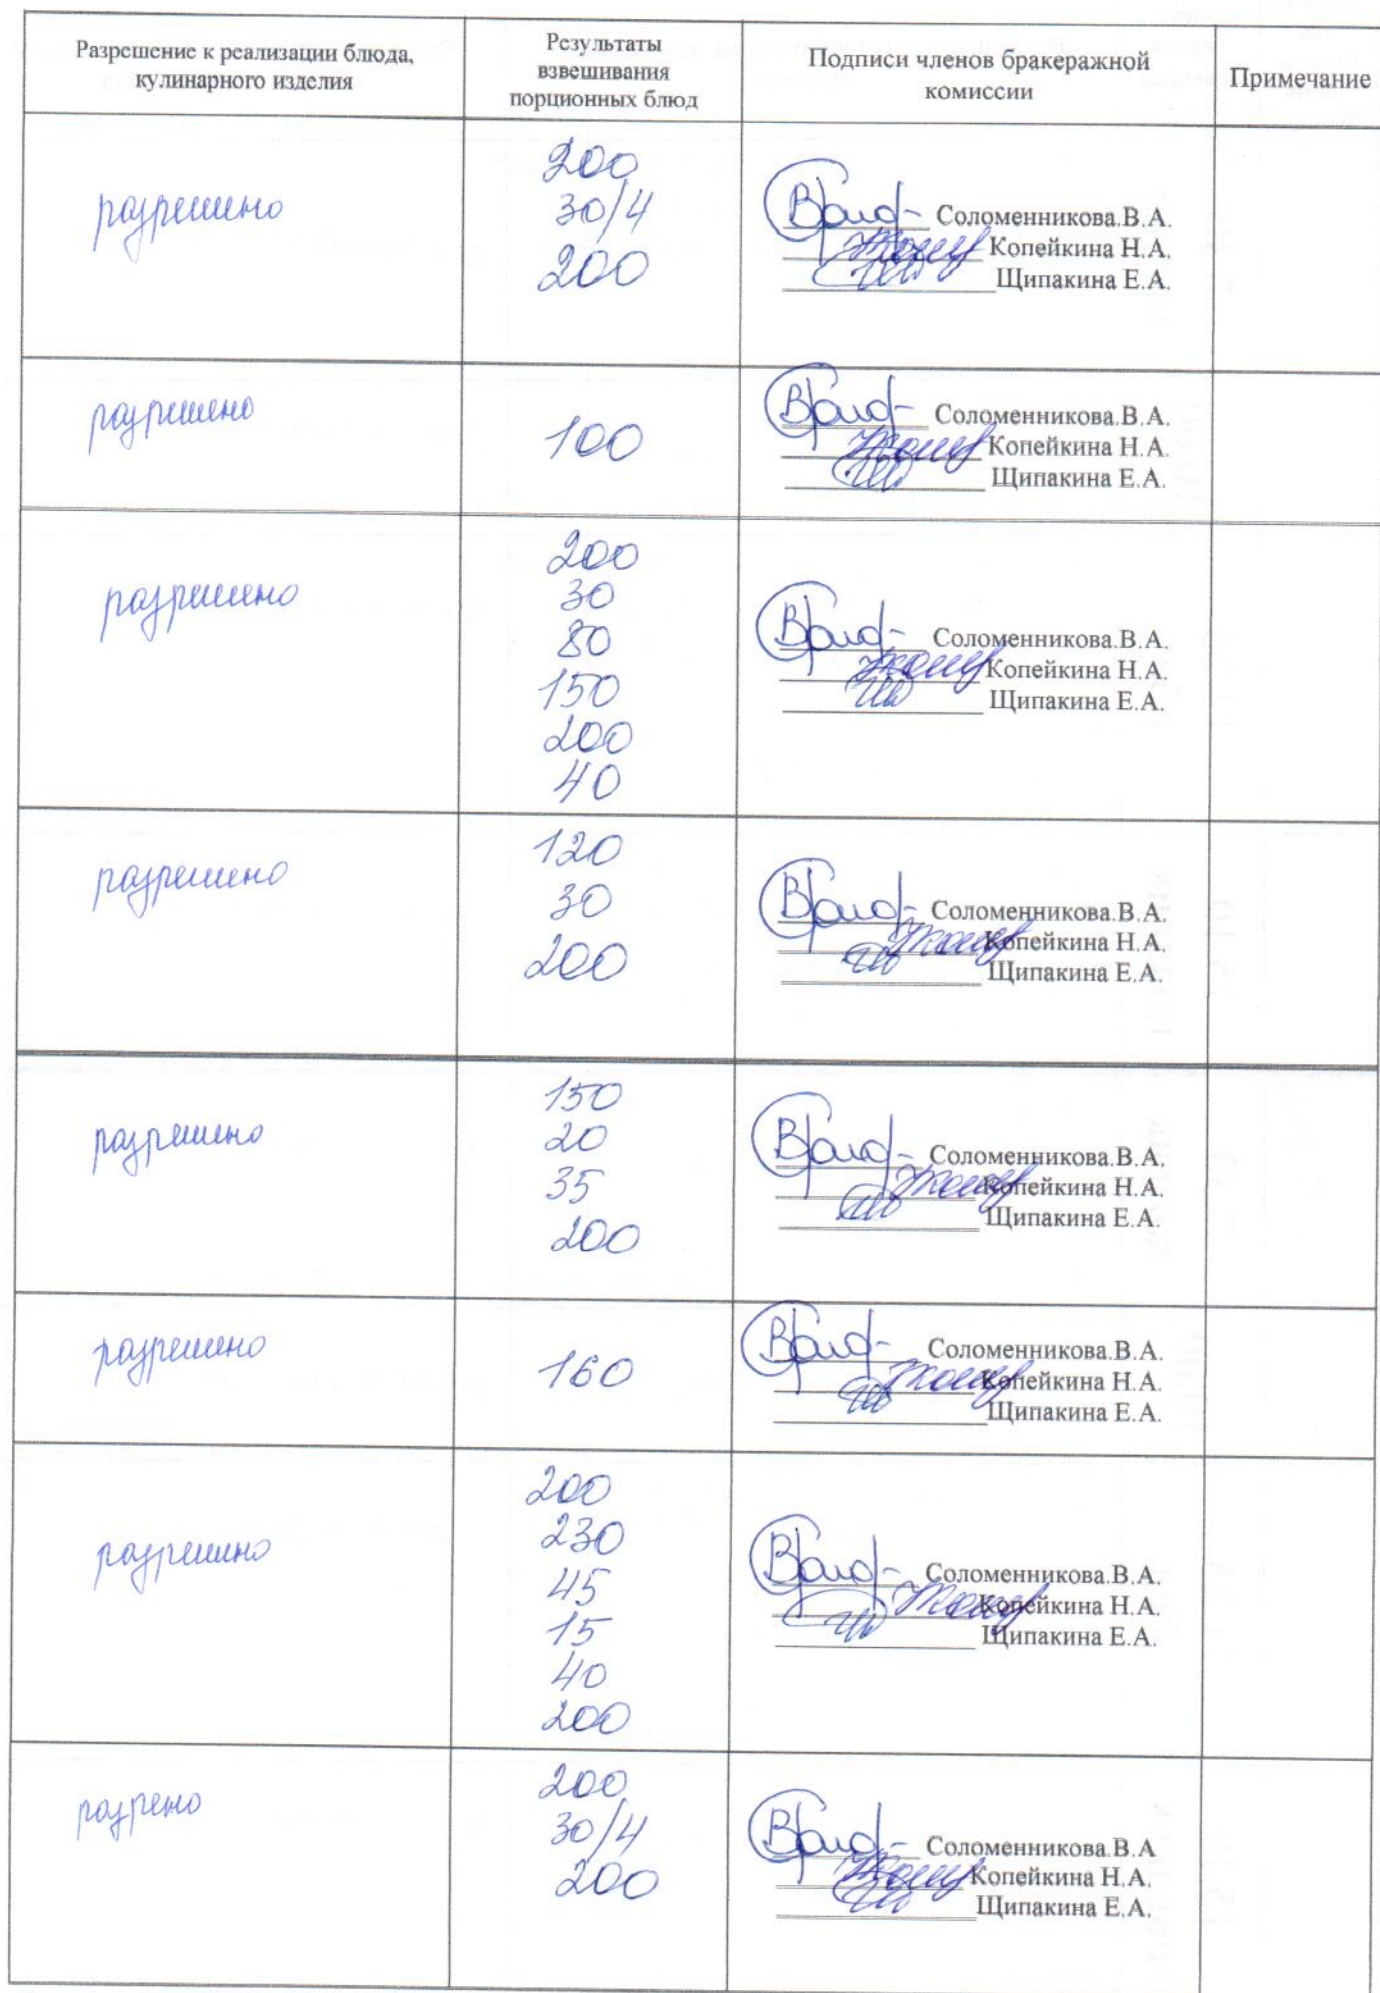 Разрешение к реализации блюда,
кулинарного изделия
Результаты
взвешивания
порционных блюд
Подписи членов бракеражной
комиссии
Примечание
разрешено
200
30/4
200
Соломенникова.В.А.
Копейкина Н.А.
Щипакина Е.А.
разрешено
100
Соломенникова.В.А.
Копейкина Н.А.
Щипакина Е.А.
разрешено
200
30
80
150
200
40
Соломенникова.В.А.
Копейкина Н.А.
Щипакина Е.А.
разрешено
120
30
200
Соломенникова.В.А.
Копейкина Н.А.
Щипакина Е.А.
разрешено
150
20
35
200
Соломенникова.В.А.
Копейкина Н.А.
Щипакина Е.А.
разрешено
160
Соломенникова.В.А.
Копейкина Н.А.
Щипакина Е.А.
разрешено
200
230
45
15
40
200
Соломенникова.В.А.
Копейкина Н.А.
Щипакина Е.А.
разрено
200
30/4
200
Соломенникова.В.А
Копейкина Н.А.
Щипакина Е.А.